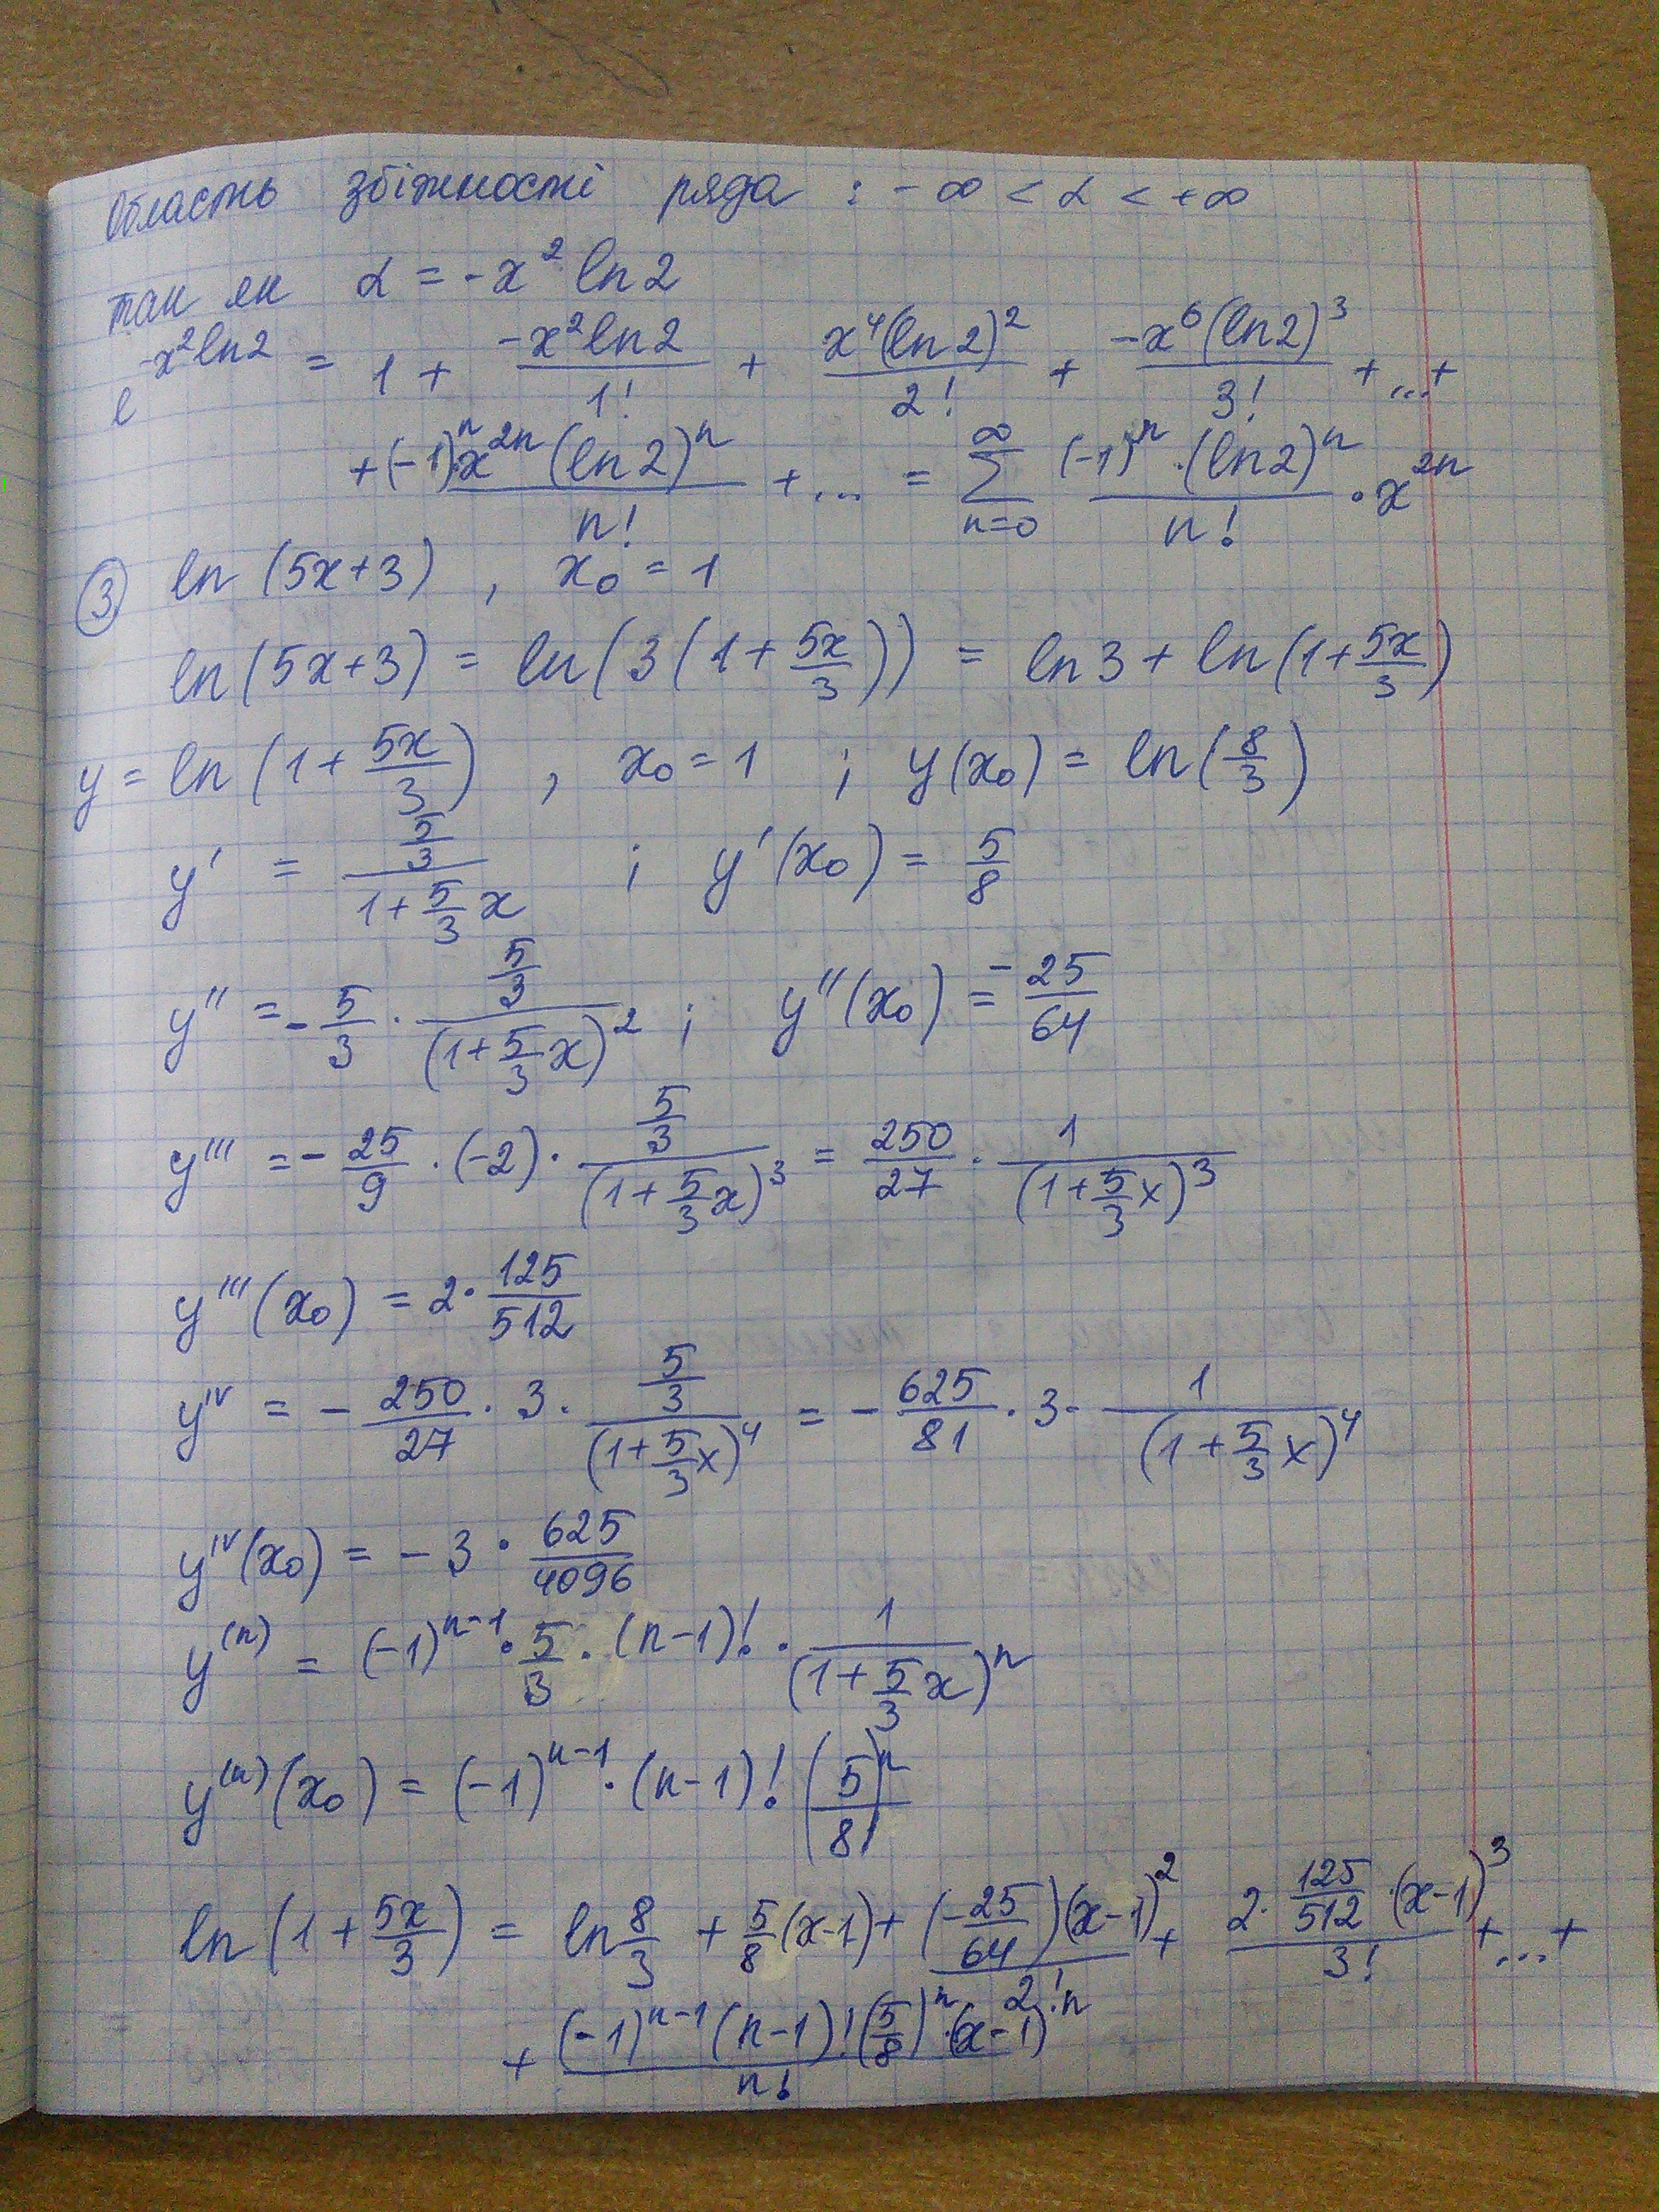 Область збіжності ряда : -∞ < α < +∞
так як α = -x² ln2
e^(-x² ln2) = 1 + (-x² ln2)/1! + (x⁴(ln2)²)/2! + (-x⁶(ln2)³)/3! + ... +
+ ((-1)ⁿ·x²ⁿ(ln2)ⁿ)/n! + ... = ∑_(n=0)^∞ ((-1)ⁿ·(ln2)ⁿ)/n! · x²ⁿ
③ ln(5x+3) , x₀ = 1
ln(5x+3) = ln(3(1+5x/3)) = ln3 + ln(1+5x/3)
y = ln(1+5x/3) , x₀ = 1 ; y(x₀) = ln(8/3)
y' = (5/3)/(1+5/3 x) ; y'(x₀) = 5/8
y'' = -5/3 · (5/3)/(1+5/3 x)² ; y''(x₀) = -25/64
y''' = -25/9 · (-2) · (5/3)/(1+5/3 x)³ = 250/27 · 1/(1+5/3 x)³
y'''(x₀) = 2 · 125/512
y^IV = -250/27 · 3 · (5/3)/(1+5/3 x)⁴ = -625/81 · 3 · 1/(1+5/3 x)⁴
y^IV(x₀) = -3 · 625/4096
y^(n) = (-1)^(n-1) · 5/3 · (n-1)! · 1/(1+5/3 x)ⁿ
y^(n)(x₀) = (-1)^(n-1) · (n-1)! (5/8)ⁿ
ln(1+5x/3) = ln 8/3 + 5/8 (x-1) + ((-25/64)(x-1)²)/2! + (2·125/512·(x-1)³)/3! + ... +
+ ((-1)^(n-1) (n-1)! (5/8)ⁿ·(x-1)ⁿ)/n!